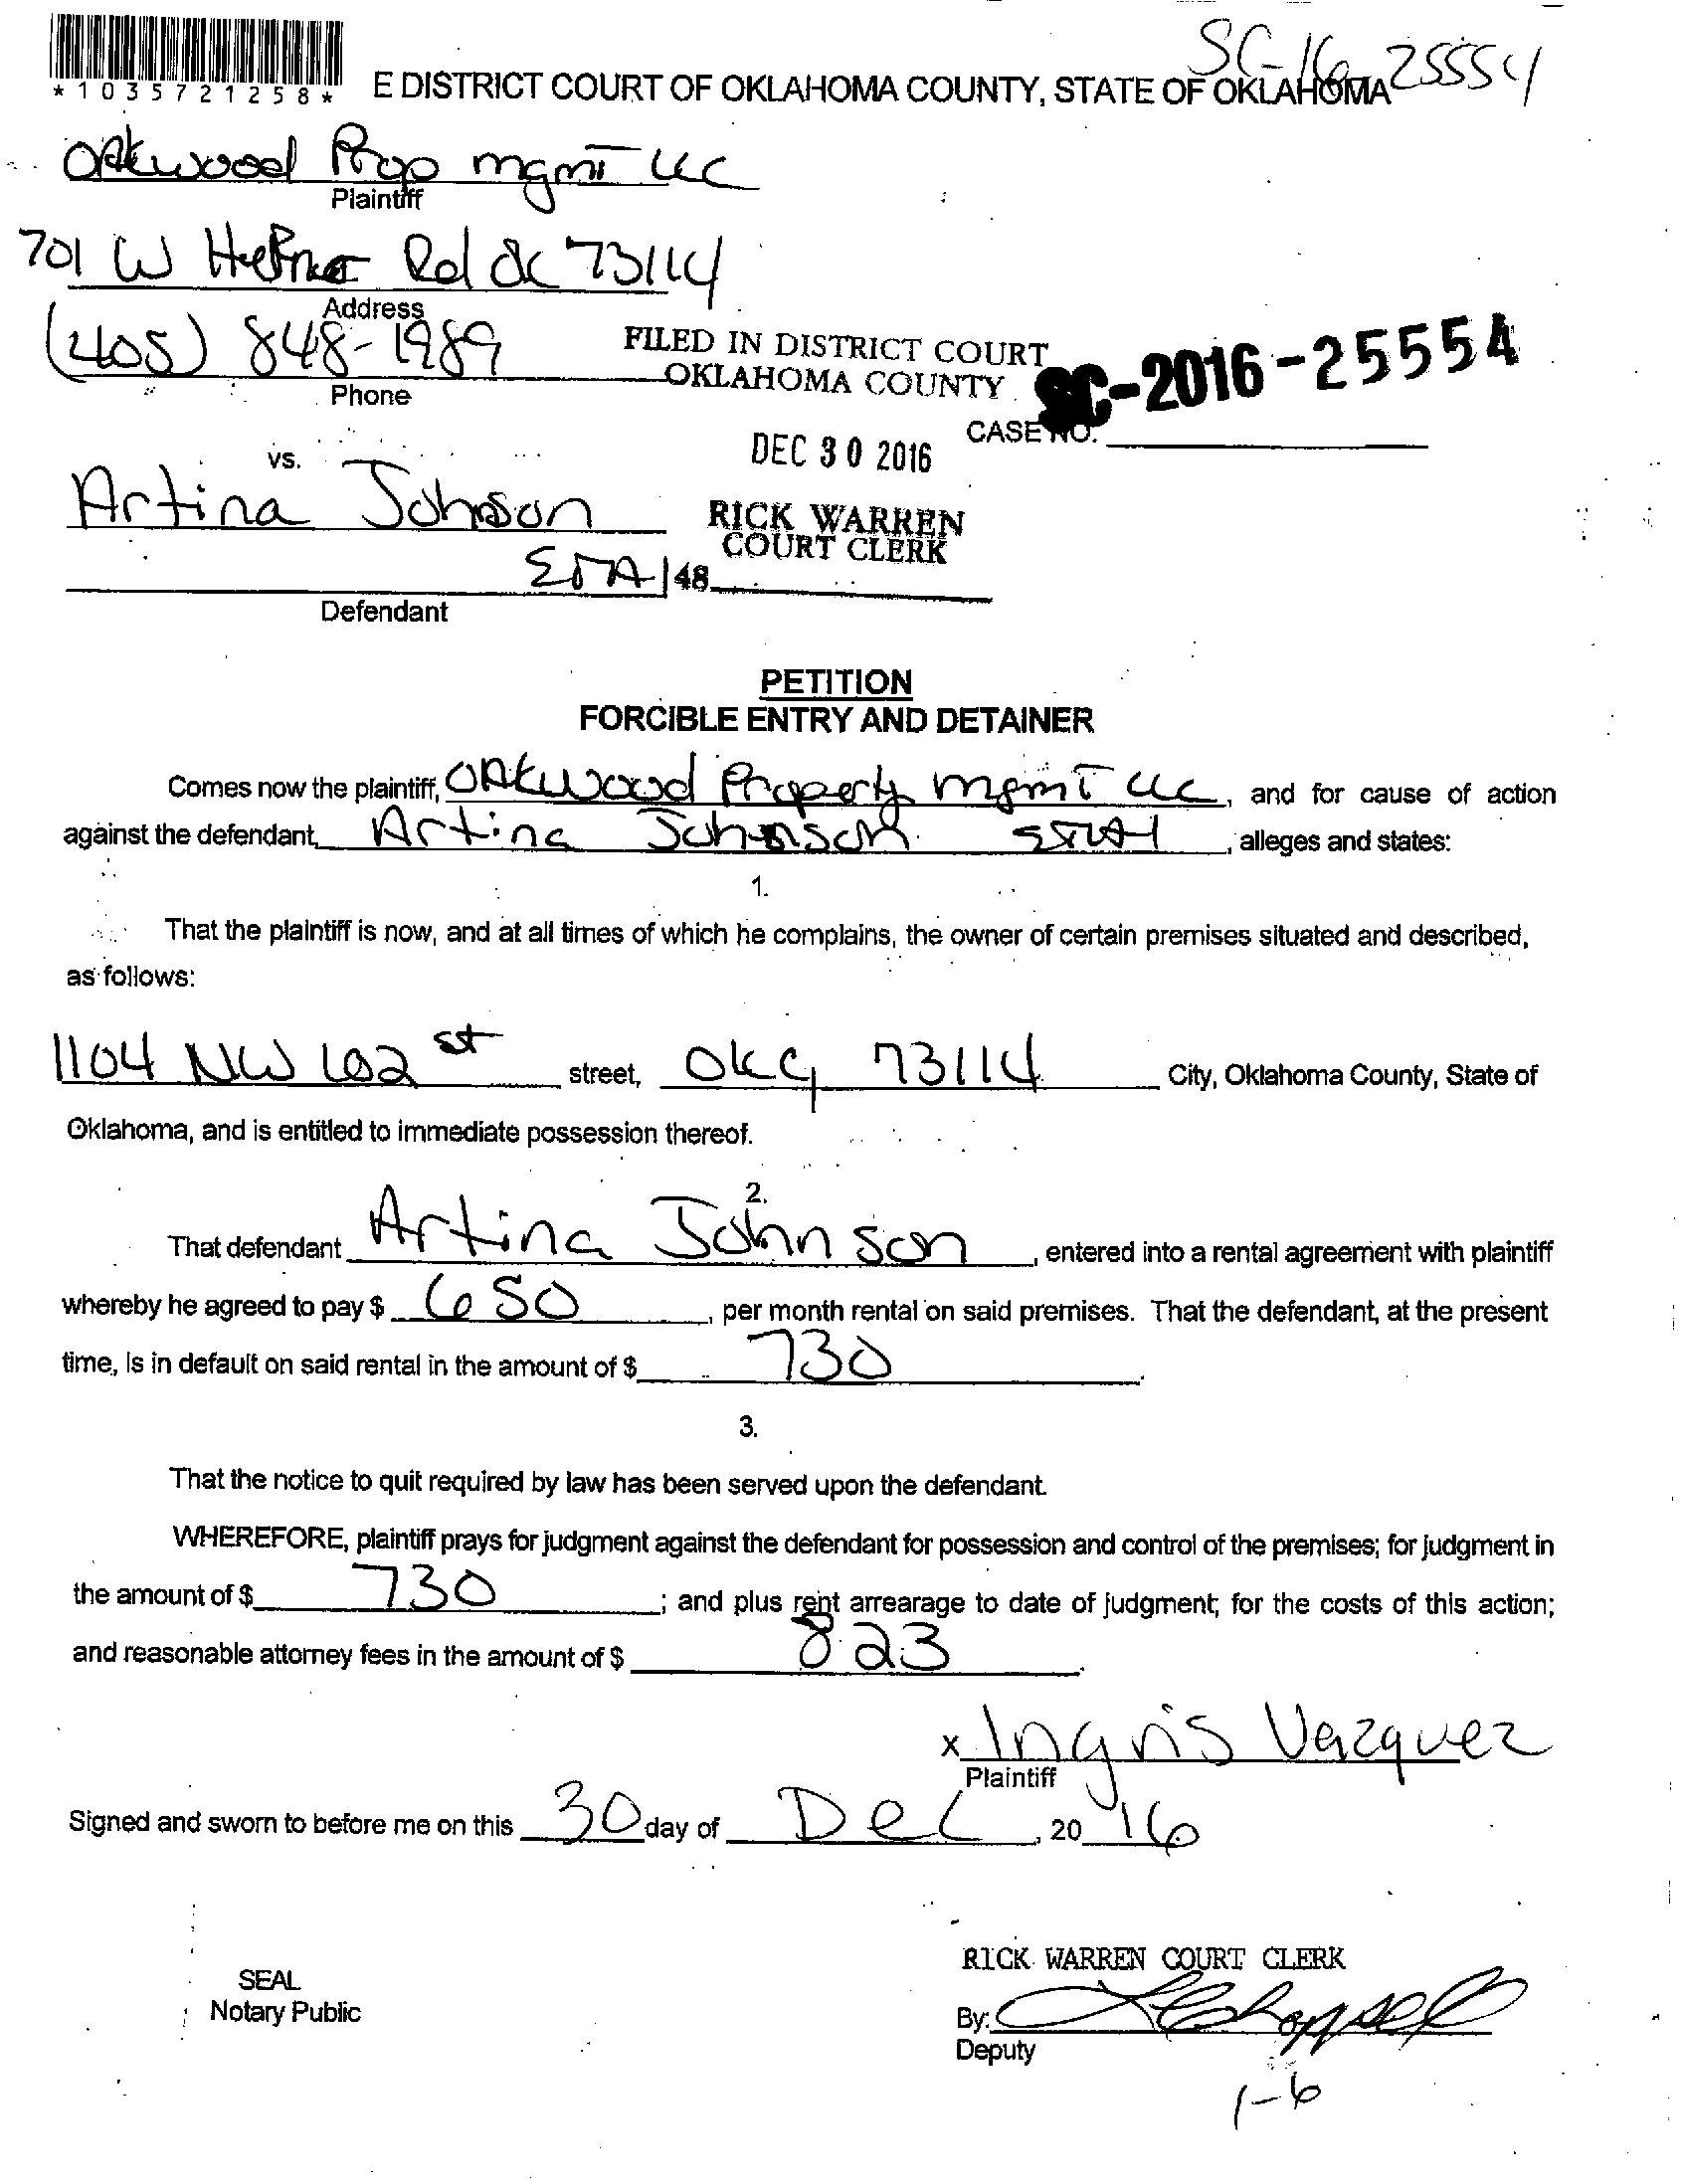 SC-16-25554
*1035721258* E DISTRICT COURT OF OKLAHOMA COUNTY, STATE OF OKLAHOMA
Oakwood Prop mgmt LLC
Plaintiff
701 W Hefner Rd OK 73114
Address
(405) 848-1989
Phone
FILED IN DISTRICT COURT
OKLAHOMA COUNTY
SC-2016-25554
CASE NO.
DEC 30 2016
vs.
Artina Johnson
RICK WARREN
COURT CLERK
48
Defendant
PETITION
FORCIBLE ENTRY AND DETAINER
Comes now the plaintiff, Oakwood Property mgmt LLC, and for cause of action
against the defendant, Artina Johnson, alleges and states:
1.
That the plaintiff is now, and at all times of which he complains, the owner of certain premises situated and described,
as follows:
1104 NW 102 st street, OKC, 73114 City, Oklahoma County, State of
Oklahoma, and is entitled to immediate possession thereof.
2.
That defendant Artina Johnson, entered into a rental agreement with plaintiff
whereby he agreed to pay $ 650, per month rental on said premises. That the defendant, at the present
time, is in default on said rental in the amount of $ 730.
3.
That the notice to quit required by law has been served upon the defendant.
WHEREFORE, plaintiff prays for judgment against the defendant for possession and control of the premises; for judgment in
the amount of $ 730; and plus rent arrearage to date of judgment; for the costs of this action;
and reasonable attorney fees in the amount of $ 823.
x Ingris Vazquez
Plaintiff
Signed and sworn to before me on this 30 day of Dec, 20 16
RICK WARREN COURT CLERK
SEAL
Notary Public
By:
Deputy
1-6